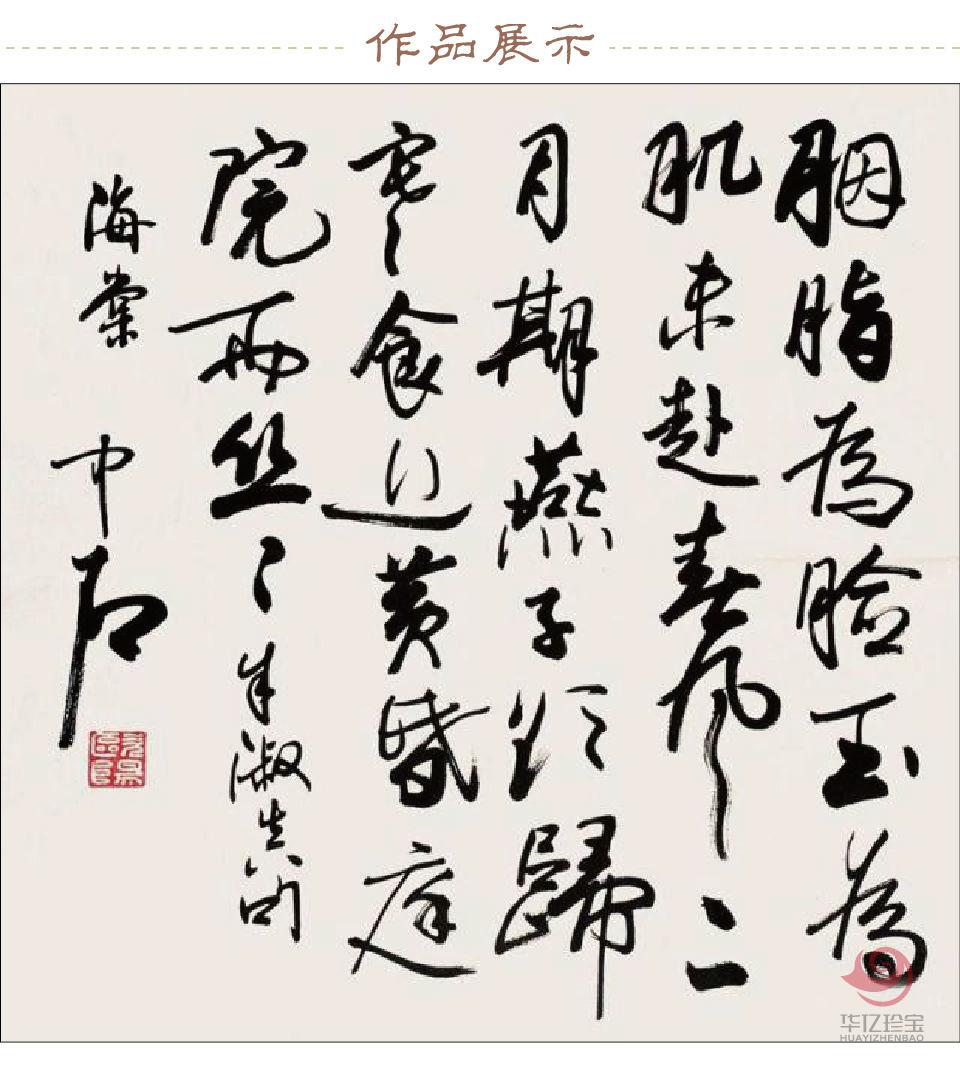 作品展示
胭脂為脸玉為
肌未赴春風二
月期燕子欲歸
寒食近黄昏庭
院雨丝〻朱淑真句
海棠 中石
华亿珍宝
HUAYIZHENBAO